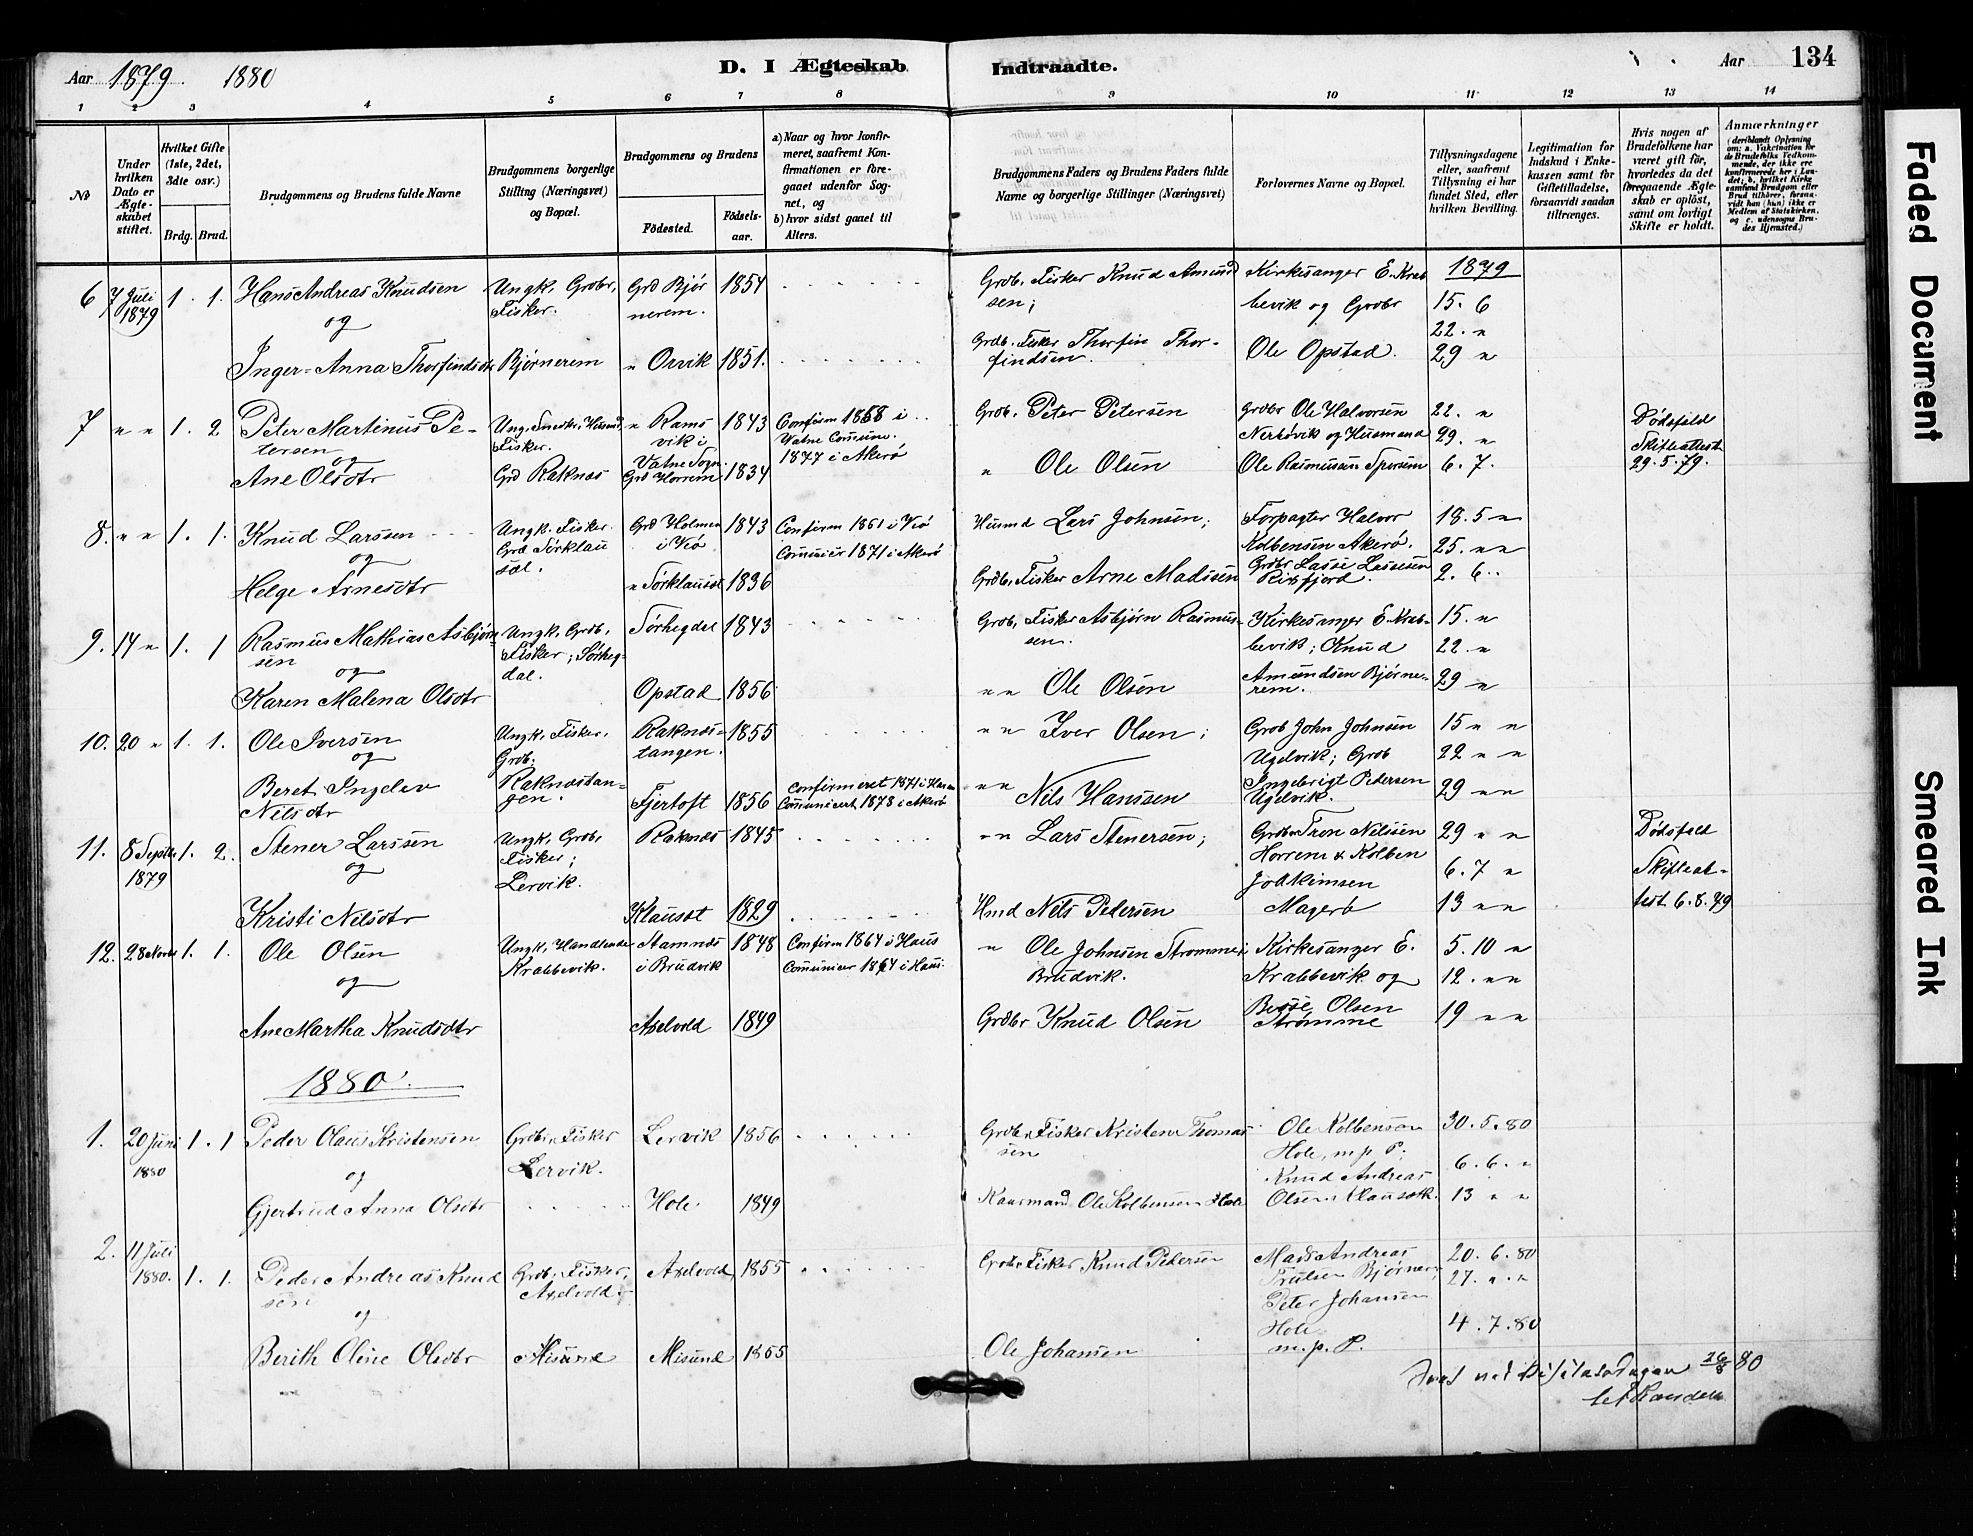 Aar 1879. 1880 D. I Ægteskab Indtraadte. Aar 134
1 2 3 4 5 6 7 8 9 10 11 12 13 14
No
Under hvilken Dato er Ægteskabet stiftet.
Hvilket Gifte (1ste, 2det, 3die osv.)
Brdg. Brud.
Brudgommens og Brudens fulde Navne
Brudgommens borgerlige Stilling (Næringsvei) og Bopæl.
Brudgommens og Brudens
Födested.
Födselsaar.
a) Naar og hvor konfirmeret, saafremt Konfirmationen er foregaaet udenfor Sognet, og
b) hvor sidst gaaet til Alters.
Brudgommens Faders og Brudens Faders fulde Navne og borgerlige Stillinger (Næringsvei)
Forlovernes Navne og Bopæl.
Tillysningsdagene eller, saafremt Tillysning ei har fundet Sted, efter hvilken Bevilling.
Legitimation for Indskud i Enkekassen samt for Giftetilladelse, forsaavidt saadan tiltrænges.
Hvis nogen af Brudefolkene har været gift för, hvorledes da det foregaaende Ægteskab er oplöst, samt om lovligt Skifte er holdt.
Anmærkninger
6 7 Juli 1879 1. 1. Hans Andreas Knudsen Ungk. Grobr, Fisker. Grd Bjørnerem. 1854 Grdb. Fisker Knud Amundsen; Kirkesanger E. Krabbevik og Grdbr 1879 15. 6
og 22. "
Inger-Anna Thorfindsdtr Bjørnerem " Orvik 1851. Grdb. Fisker Thorfin Thorfindsen. Ole Opstad. 29 "
7 " " 1. 2 Peter Martinus Petersen Fisker. " Ramsvik i Vatne Sogn. 1843 Confirm 1868 i Vatne Comun. 1877 i Akerö Grob. Peter Petersen Grdbr Ole Halvorsen Nerbövik og Husmand 22. " 29. " Dødsfald Skifteattest 29.5.79.
og
Ane Olsdtr Grd Raknæs Grd Horrem 1834 " Ole Olsen Ole Rasmussen 6. 7.
8. " " 1. 1. Knud Larssen Ungk. Fisker. Grd Sørklausæt. Grd Holmen i Veö 1843 Confirm 1861 i Veö Comunier 1871 i Akerö Husmd Lars Johnsen; Forpagter Halvor Kolbensen Akerö. 18. 5 " 25. " "
og
Helge Arnesdtr " Sørklausæt 1836 Grdb. Fisker Arne Madssen Grdbr Lasse Lassesen Rixfjord. 2. 6
9. 14 " 1. 1 Rasmus Mathias Asbjørnsen Ungk. Grdb. Fisker; Sørhegdal. Sørhegdal 1843 Grob. Fisker Asbjørn Rasmussen. Kirkesanger E. Krabbevik; Knud 15. " 22. "
og
Karen Malena Olsdtr Opstad 1856 " " Ole Olsen Amundsen Bjørnerem. 29 "
10. 20 " 1. 1. Ole Iversen Ungk. Fisker. Grdb. Raknæstangen. 1855 " " Iver Olsen; Grob John Johnsen Ugelvik; Grob 15 " " 22 " "
og
Beret Ingelev Nilsdtr Raknæstangen. Fjertoft 1856 Confirmeret 1871 i Haram Comunicert 1878 i Akerö " " Nils Hanssen Ingebrigt Pedersen Ugelvik. 29 " "
11. 8 Septbr 1879 1. 2. Stener Larssen Ungk. Grobr Fisker; Lervik. Raknæs 1845 " " Lars Stenersen; Grdbr Tron Nilssen Horrem & Kolben 29 " " 6. 7 " Dødsfald Skifteattest 6.8.79
og
Kristi Nilsdtr Klausæt 1829 Hmd Nils Pedersen Joakimsen Magerö 13 " "
12. 28 Novbr 1. 1. Ole Olsen Ungk. Handlende Krabbevik. Stamnæs i Brudvik 1848 Confirm 1864 i Haus Comunier 1864 i Haus. " Ole Johnsen Strømme i Brudvik. Kirkesanger E. Krabbevik og 5. 10 " 12. " "
og
Ane Martha Knudsdtr Axelvold 1849 Grdbr Knud Olsen Olsen Strømme 19 " "
1880.
1. 20 Juni 1880 1. 1 Peder Olaus Kristensen Grdbr, Fisker Lervik. Lervik 1856 Grdbr, Fisker Kristen Thomassen Ole Kolbensen Hole, m.p. P. 30. 5. 80
og Knud Andreas 6. 6. "
Gjertrud Anna Olsdtr Hole 1849 Kaarmand Ole Kolbensen Hole Olsen Klausæt. 13 " "
2. 11 Juli 1880. 1. 1. Peder Andreas Knudsen Grdb., Fisker, Axelvold. Axelvold 1855 Grobr, Fisker, Knud Pedersen Mads Andreas Trulsen Bjørnerem 20. 6. 80 27. " "
og Peter Johansen
Berith Oline Olsdtr Misund Misund 1855 Ole Johansen Hole m.p. P. 4. 7. 80
80
Faded Document
Smeared Ink